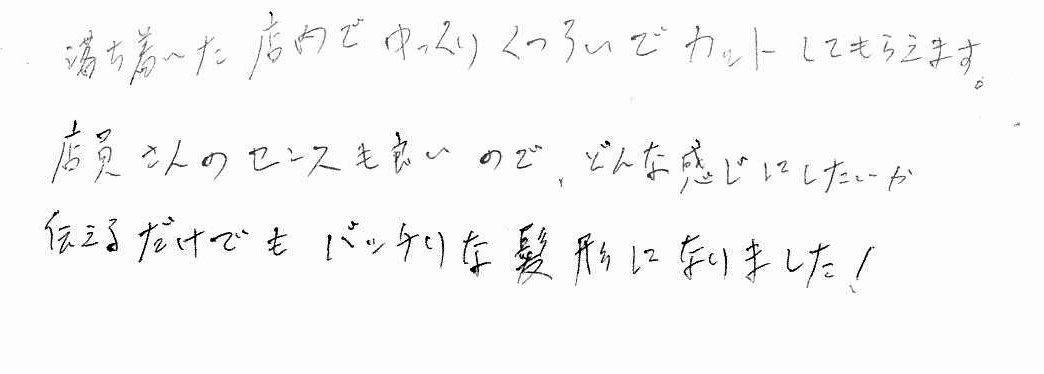 落ち着いた店内でゆっくりくつろいでカットしてもらえます。
店員さんのセンスも良いので、どんな感じにしたいか
伝えるだけでもバッチリな髪形になりました!